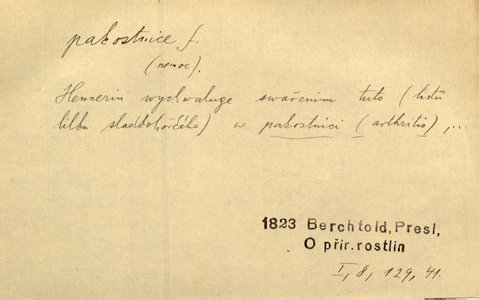 pakostnice f.
(nemoc).
Hennerin wychwaluge swařeninu tuto (listů
lilku sladkohořčého) w pakostnici (arthritis), ...
1823 Berchtold, Presl,
O přir. rostlin
I, 8, 129, 41.